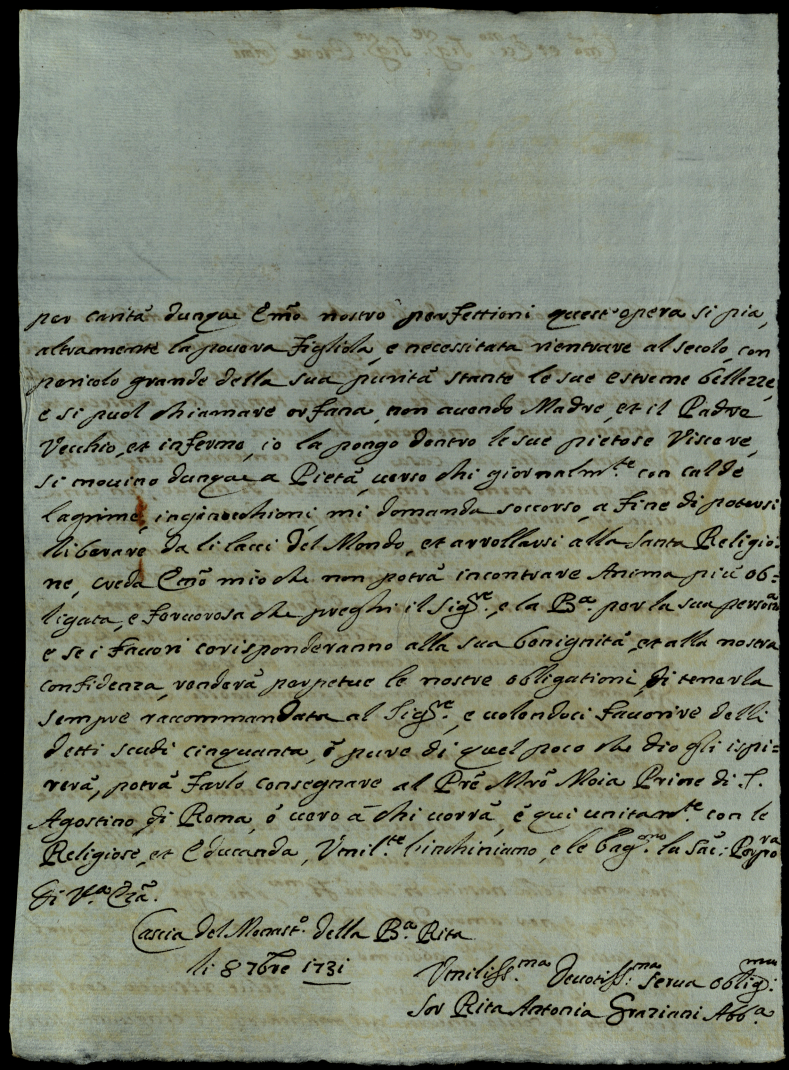 per carità dunque Emõ nostro perfettioni quest'opera si pia,
altramente la povera Figliola, e necessitata rientrare al secolo, con
pericolo grande della sua purità stante le sue estreme bellezze,
e si puol chiamare orfana, non avendo Madre, et il Padre
Vecchio, et infermo, io la pongo dentro le sue pietose Viscere,
si movino dunque a Pietà, verso chi giornalm.te con calde
lagrime, inginocchioni, mi domanda soccorso, a fine di potersi
liberare da li lacci del Mondo, et arrollarsi alla Santa Religio:
ne, creda Emõ mio che non potrà incontrare Anima più ob:
ligata, e fervorosa che preghi il Sig.re, e la B.a per la sua persona
e se i favori corisponderanno alla sua benignità, et alla nostra
confidenza, renderà perpetue le nostre obligationi, di tenerla
sempre raccommandata al Sig.re, e volendoci favorire delli
detti scudi cinquanta, ò pure di quel poco che dio gli ispi:
rerà, potrà farlo consegnare al Prẽ Mrõ Moia Priore di S.
Agostino, di Roma, ò vero à chi vorrà, e qui unitam.te con le
Religiose, et Educanda, Umil.te l'inchiniamo, e le bag.mo la Sac: Porpora
di V.a Emã.
Cascia del Monast.o della B.a Rita
li 8 7bre 1731
Umiliss.ma Devotiss:ma serva oblig:ma
Sor Rita Antonia Graziani Abb.a